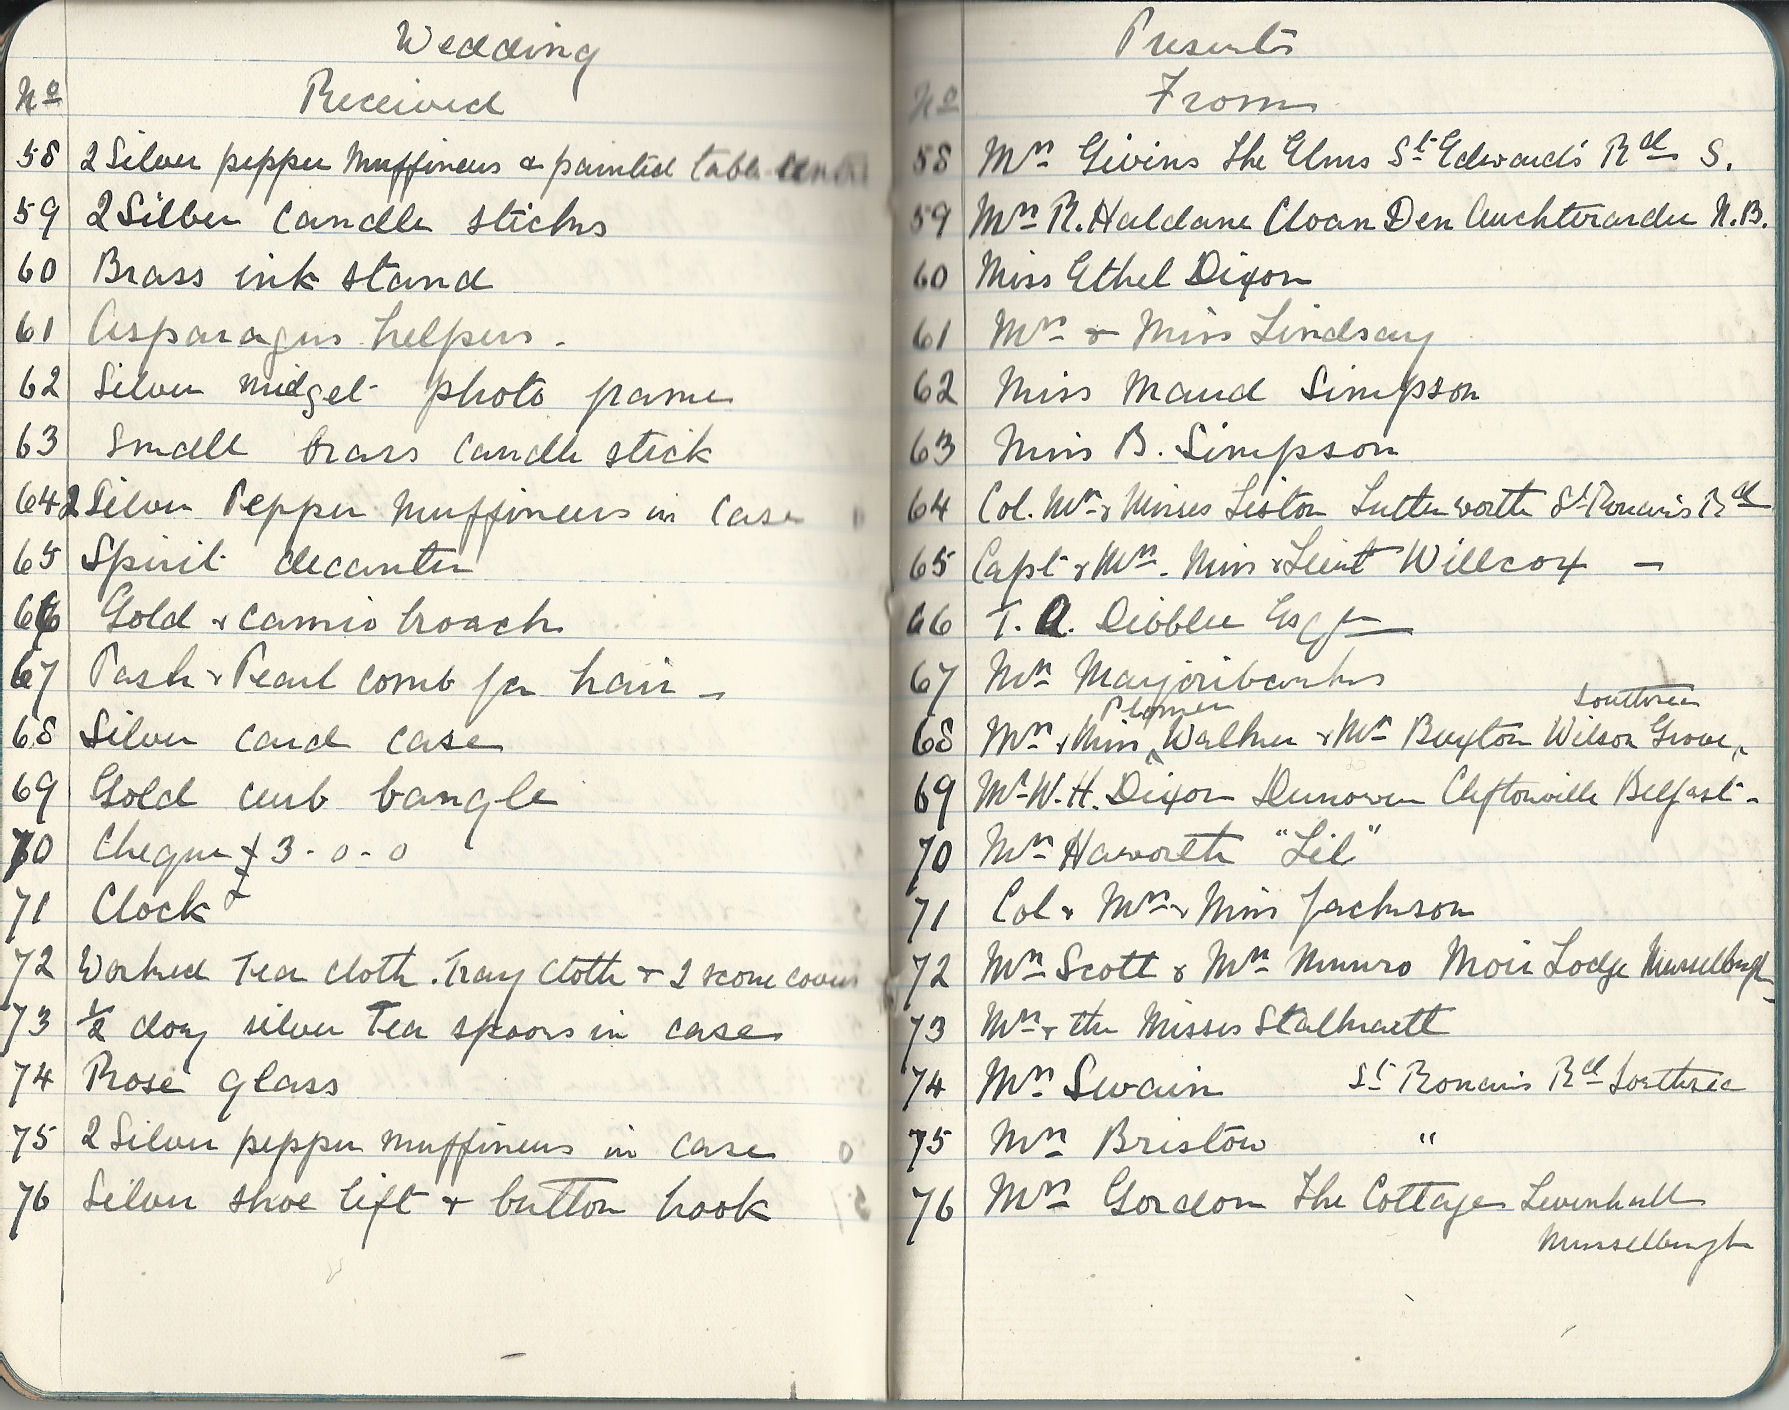 Wedding
Received
Nº
58 2 Silver pepper muffineers & painted table centre
59 2 Silver Candle sticks
60 Brass ink stand
61 Asparagus helpers.
62 Silver midget photo frame
63 Small brass candle stick
64 2 Silver Pepper Muffineers in Case
65 Spirit decanter
66 Gold & cameo broach
67 Paste & Pearl comb for hair -
68 Silver card case
69 Gold curb bangle
70 Cheque £3-0-0
71 Clock &
72 Worked Tea cloth. Tray cloth & 2 scone covers
73 ½ doz silver Tea spoons in case
74 Rose glass
75 2 Silver pepper muffineers in case
76 Silver shoe lift & button hook
Presents
From
Nº
58 Mrs Givins The Elms St Edward's Rd S.
59 Mrs R. Haldane Cloan Den Auchterarder N.B.
60 Miss Ethel Dixon
61 Mrs & Miss Lindsay
62 Miss Maud Simpson
63 Miss B. Simpson
64 Col. Mrs & Misses Liston Lutterworth St Ronan's Rd
65 Capt & Mrs. Miss & Lieut Willcox -
66 T. A. Dibblee Esqre
67 Mrs Marjoribanks
68 Mrs & Miss Plomer Walker & Mrs Buxton Wilson Grove, Southsea
69 Mr W. H. Dixon Dunowen Cliftonville Belfast -
70 Mrs Haworth "Lil"
71 Col & Mrs & Miss Jackson
72 Mrs Scott & Mrs Munro Moir Lodge Musselburgh
73 Mrs & the Misses Stalkartt
74 Mrs Swain St Ronan's Rd Southsea
75 Mrs Bristow "
76 Mrs Gordon The Cottage Levenhall
Musselburgh